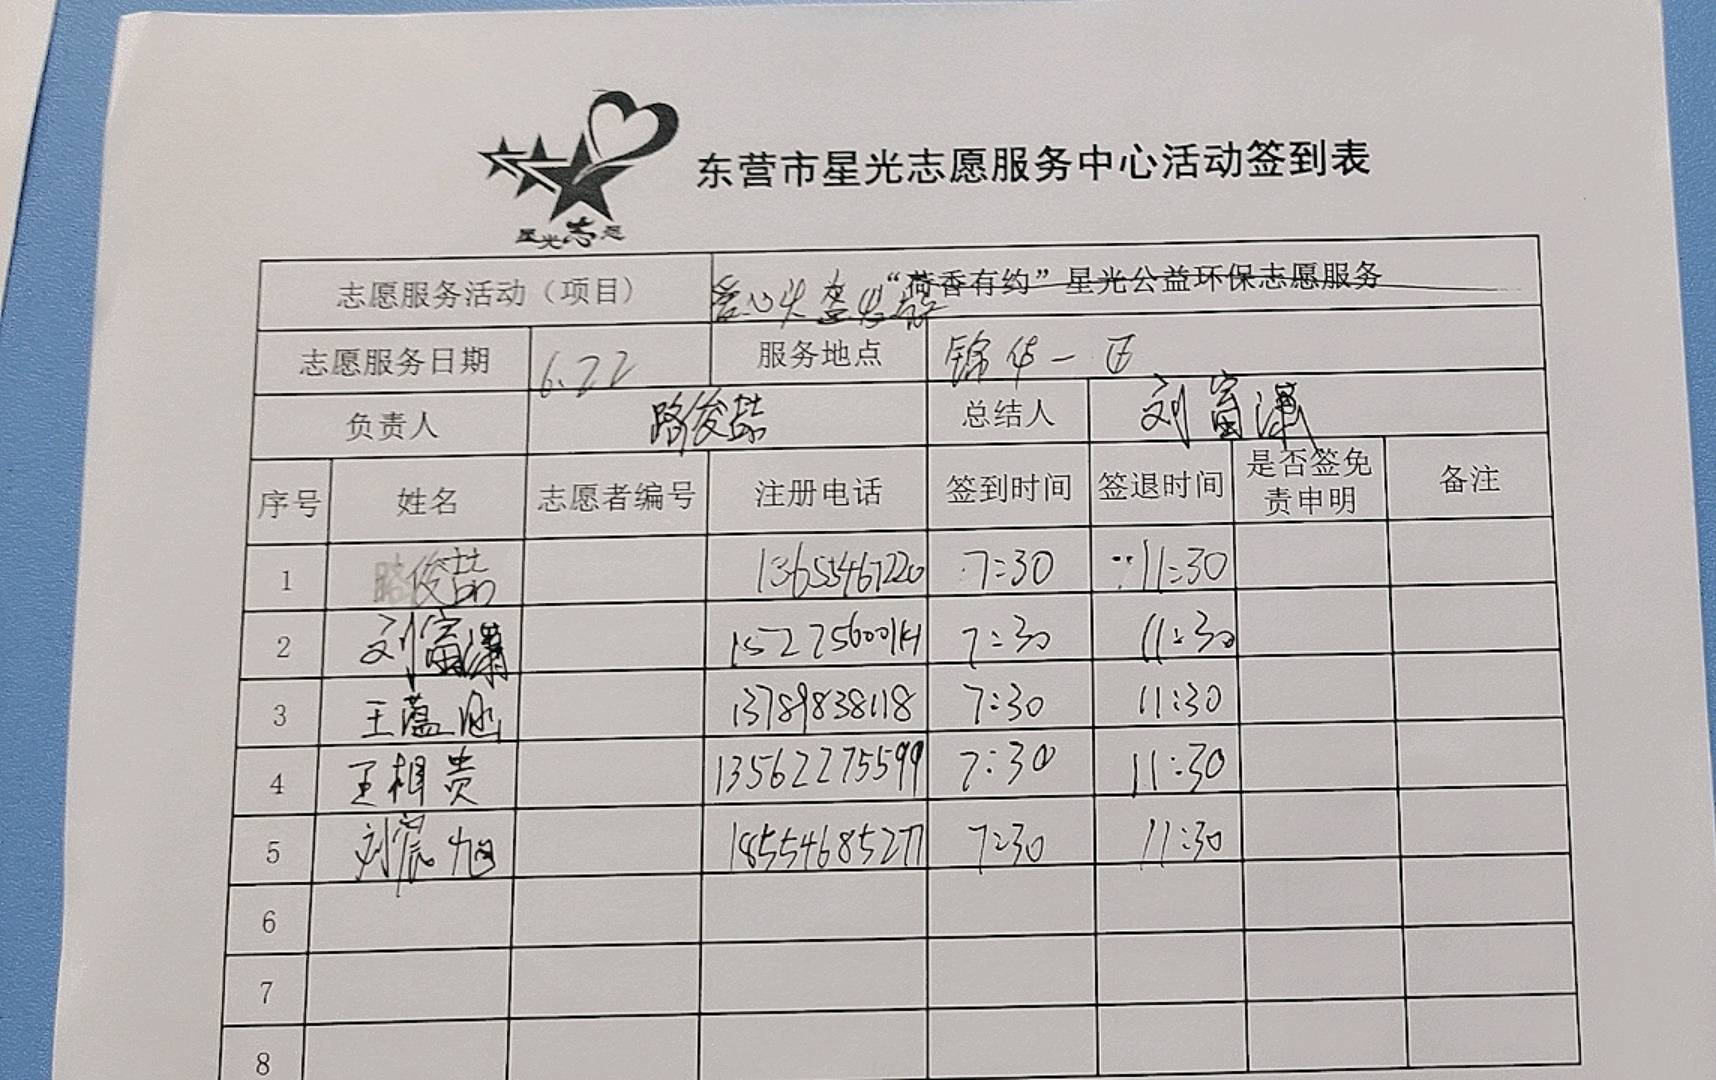 星光志愿
东营市星光志愿服务中心活动签到表
志愿服务活动（项目） 爱心头盔 “荷香有约”星光公益环保志愿服务
志愿服务日期 6.22 服务地点 锦华一
负责人 路俊喆 总结人 刘富满
序号 姓名 志愿者编号 注册电话 签到时间 签退时间 是否签免责申明 备注
1 路俊喆 13655467220 7:30 11:30
2 刘富 7:30 11:30
3 王蕴涵 13789838118 7:30 11:30
4 王相贵 13562275599 7:30 11:30
5 刘宸旭 18554685277 7:30 11:30
6
7
8